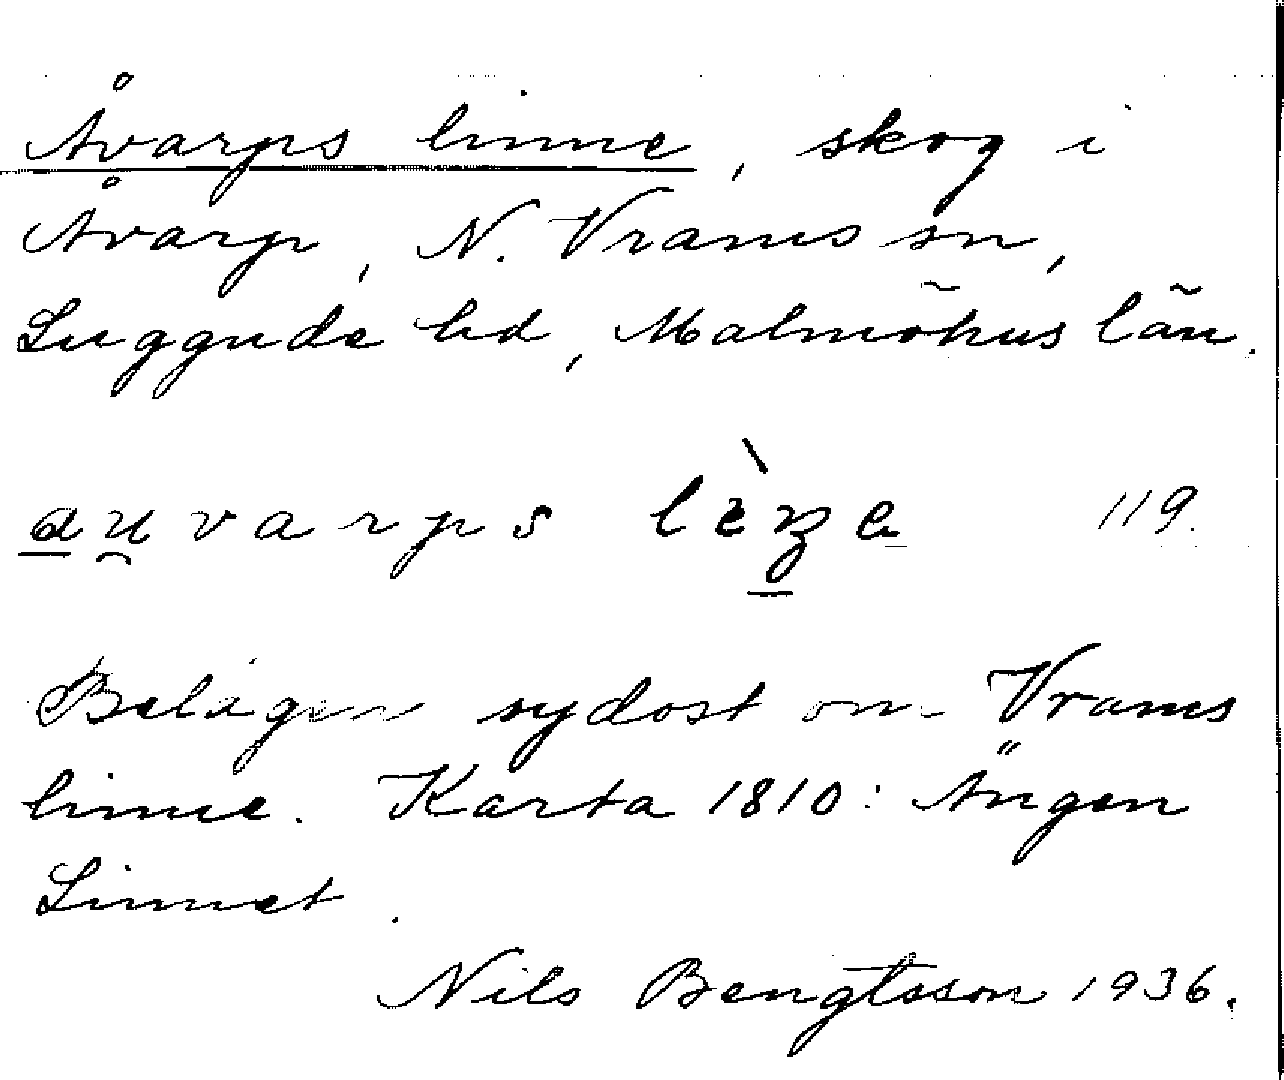 Åvarps linne, skog i
Åvarp, N. Vrams sn,
Luggude hd, Malmöhus län.
au̯varps 119.
Belägen sydost om Vrams
linne. Karta 1810: Ängen
Linnet.
Nils Bengtsson 1936.